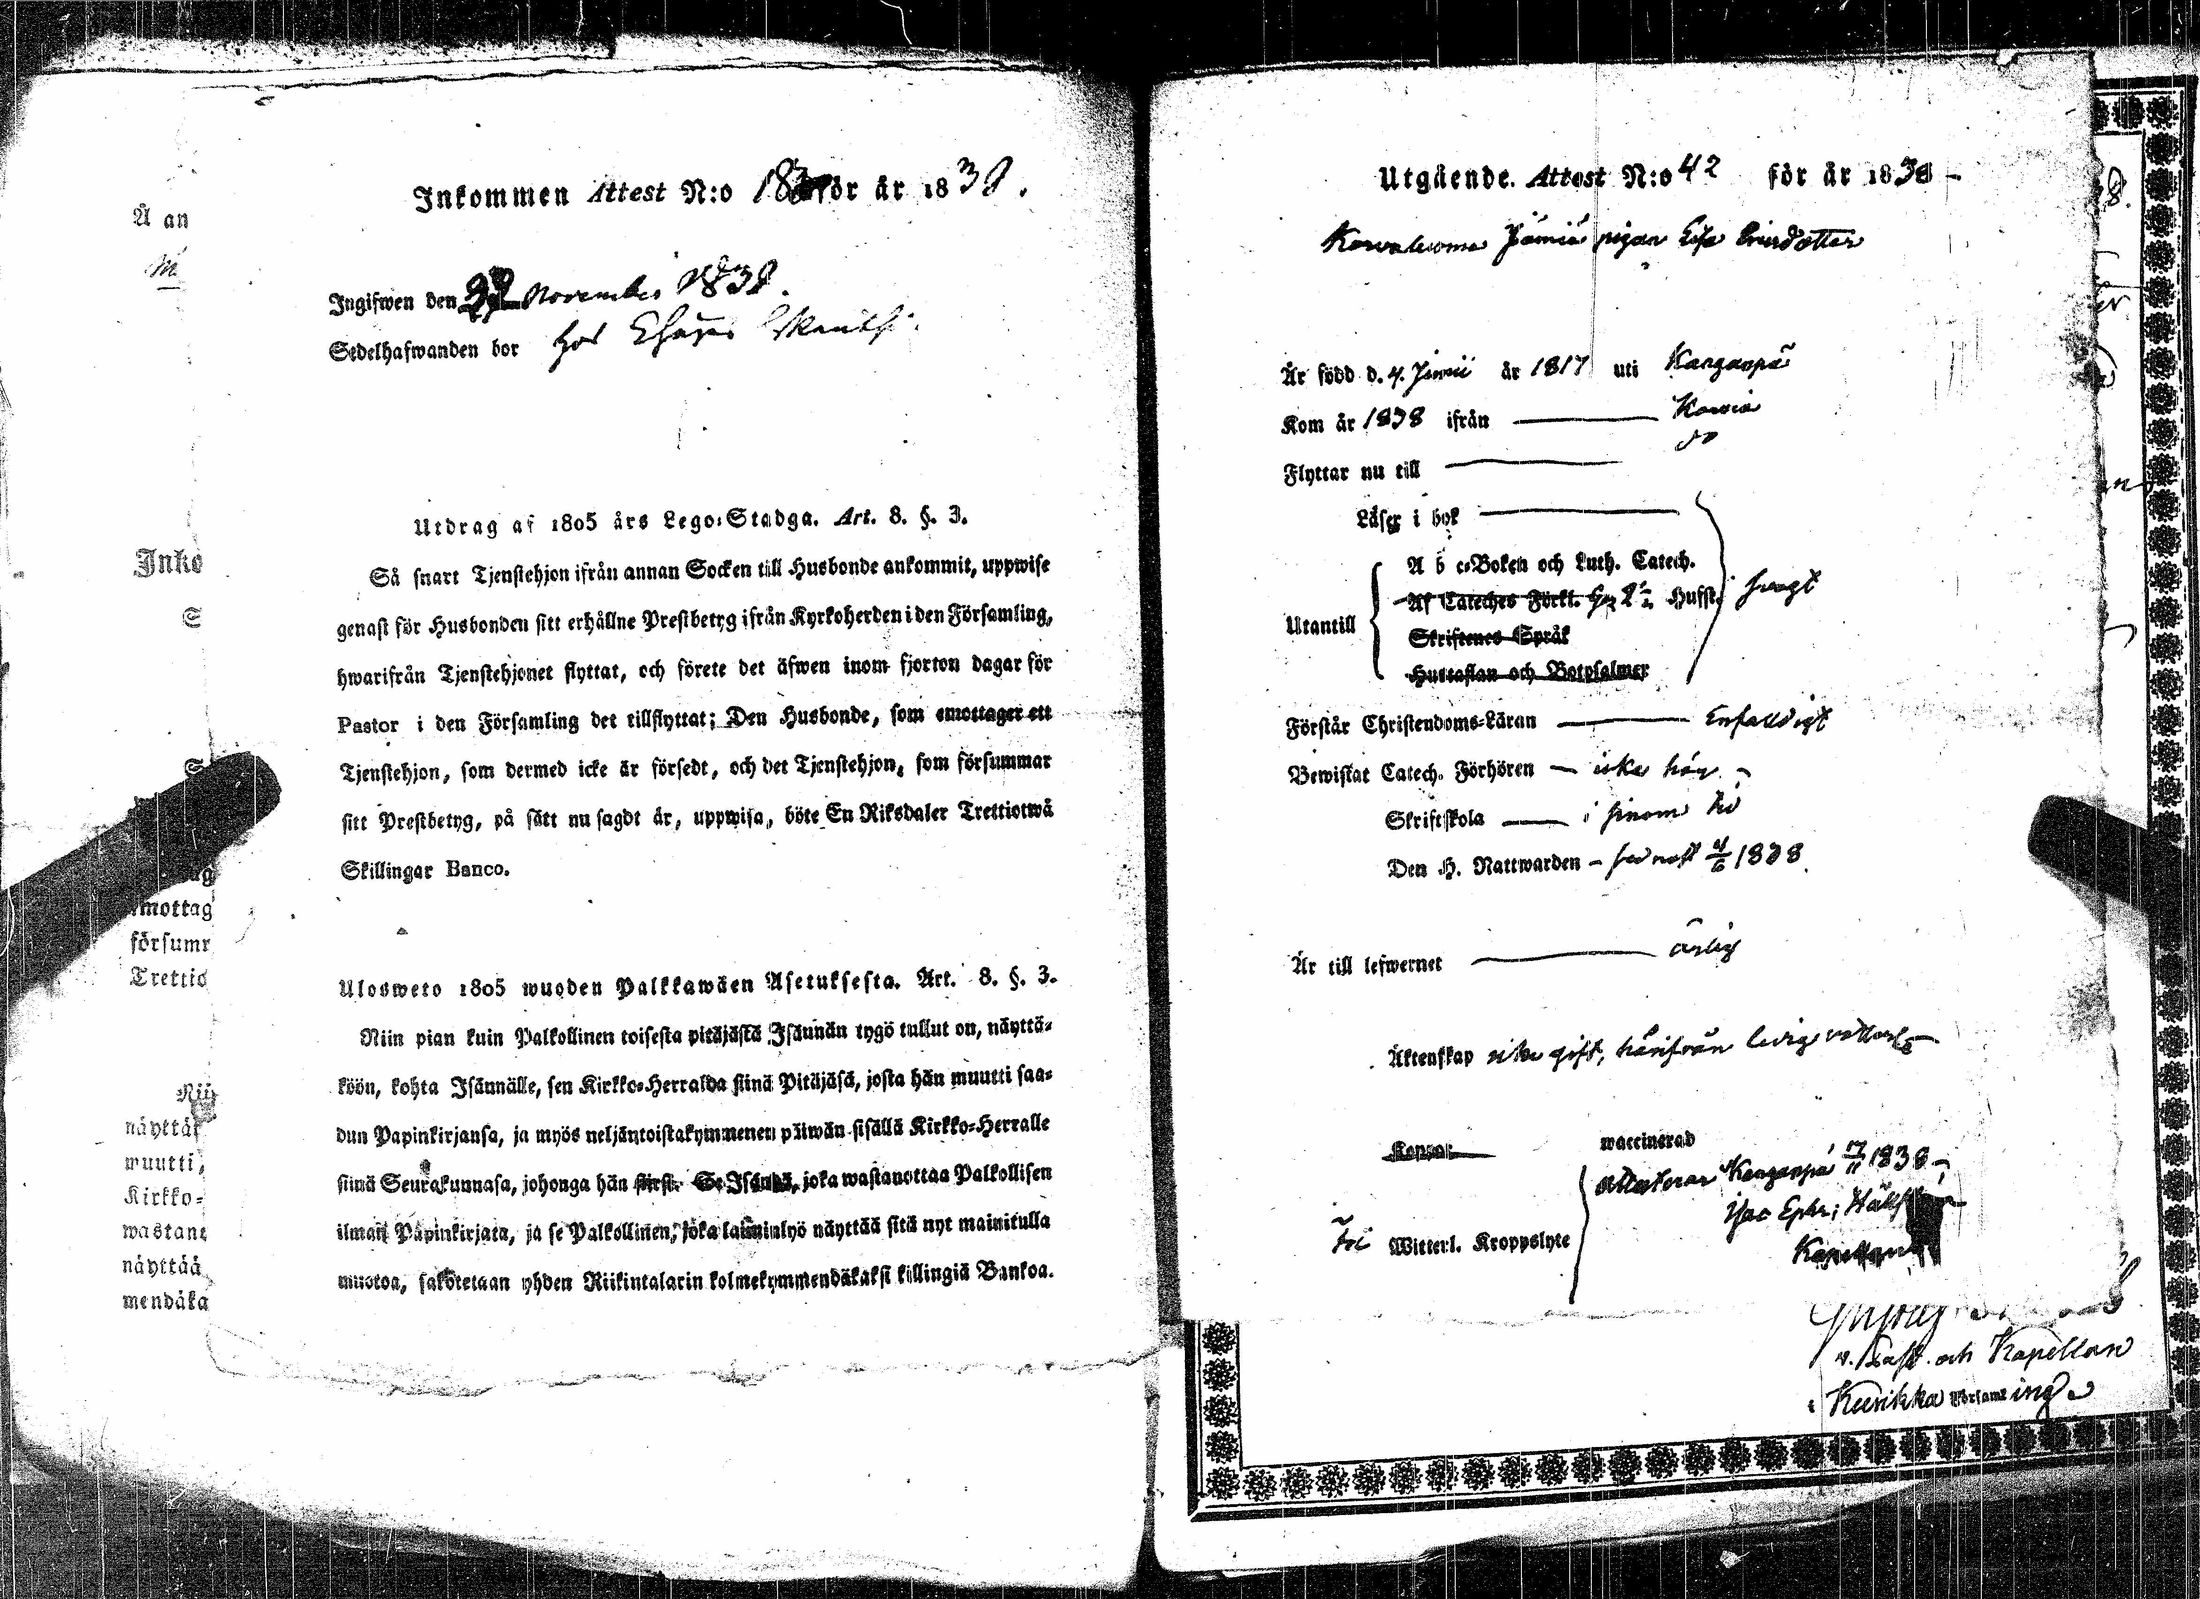 Å an
M
Inko
mottag
försumr
Trettio
Nii
näyttäk
muutti,
Kirkko-
wastano
näyttää
mendäka
Inkommen Attest N:o 18 för år 1838.
Ingifwen den November 1838.
Sedelhafwanden bor hos
Utdrag af 1805 års Lego-Stadga. Art. 8. §. 3.
Så snart Tjenstehjon ifrån annan Socken till Husbonde ankommit, uppwise
genast för Husbonden sitt erhållne Prestbetyg ifrån Kyrkoherden i den Församling,
hwarifrån Tjenstehjonet flyttat, och förete det äfwen inom fjorton dagar för
Pastor i den Församling det tillflyttat; Den Husbonde, som emottager ett
Tjenstehjon, som dermed icke är försedt, och det Tjenstehjon, som försummar
sitt Prestbetyg, på sätt nu sagdt är, uppwisa, böte En Riksdaler Trettiotwå
Skillingar Banco.
Ulosweto 1805 wuoden Palkkawäen Asetuksesta. Art. 8. §. 3.
Niin pian kuin Palkollinen toisesta pitäjästä Isännän tygö tullut on, näyttä-
köön, kohta Isännälle, sen Kirkko-Herralda siinä Pitäjäsä, josta hän muutti saa-
dun Papinkirjansa, ja myös neljäntoistakymmenen päiwän sisällä Kirkko-Herralle
siinä Seurakunnasa, johonga hän siirsi. Se Isändä, joka wastanottaa Palkollisen
ilman Papinkirjata, ja se Palkollinen, joka laiminlyö näyttää sitä nyt mainitulla
muotoa, sakotetaan yhden Riikintalarin kolmekymmendäkaksi killingiä Bankoa.
Utgående. Attest N:o 42 för år 1838
Jämiä pigan Ersdotter
Är född d. 4. Junii år 1817 uti Kangaspä
Kom år 1838 ifrån Karvia
Flyttar nu till do
Läser i bok
A b c-Boken och Luth. Catech.
Af Cateches Förkl. Hufst.
Utantill
Skriftenes Språk
Hustaflan och Botpsalmer
svagt
Förstår Christendoms-Läran Enfalldigt
Bewistat Catech. Förhören icke här
Skriftskola i sinom tid
Den H. Nattwarden sednast 4/6 1838.
Är till lefwernet ärlig
Äktenskap icke gift, härifrån ledig
Koppor waccinerad
attesterar Kangaspä 17/11 1838
Fri Witterl. Kroppslyte
Isac Ephr:
Kapellan
8.
v. Past. och Kapellan
i Kurikka Församling